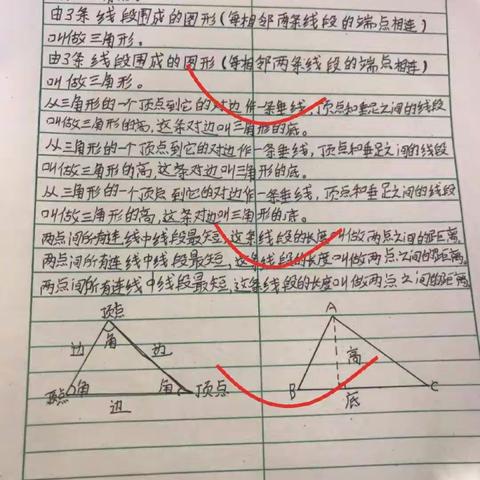 由3条线段围成的图形(每相邻两条线段的端点相连)
叫做三角形.
由3条线段围成的图形(每相邻两条线段的端点相连)
叫做三角形。
从三角形的一个顶点到它的对边作一条垂线,顶点和垂足之间的线段
叫做三角形的高,这条对边叫三角形的底。
从三角形的一个顶点到它的对边作一条垂线,顶点和垂足之间的线段
叫做三角形的高,这条对边叫三角形的底。
从三角形的一个顶点到它的对边作一条垂线,顶点和垂足之间的线段
叫做三角形的高,这条对边叫三角形的底。
两点间所有连线中线段最短,这条线段的长度叫做两点之间的距离.
两点间所有连线中线段最短,这条线段的长度叫做两点之间的距离.
两点间所有连线中线段最短,这条线段的长度叫做两点之间的距离.
顶点
角
边 边
顶点 角 角 顶点
边
A
高
B C
底